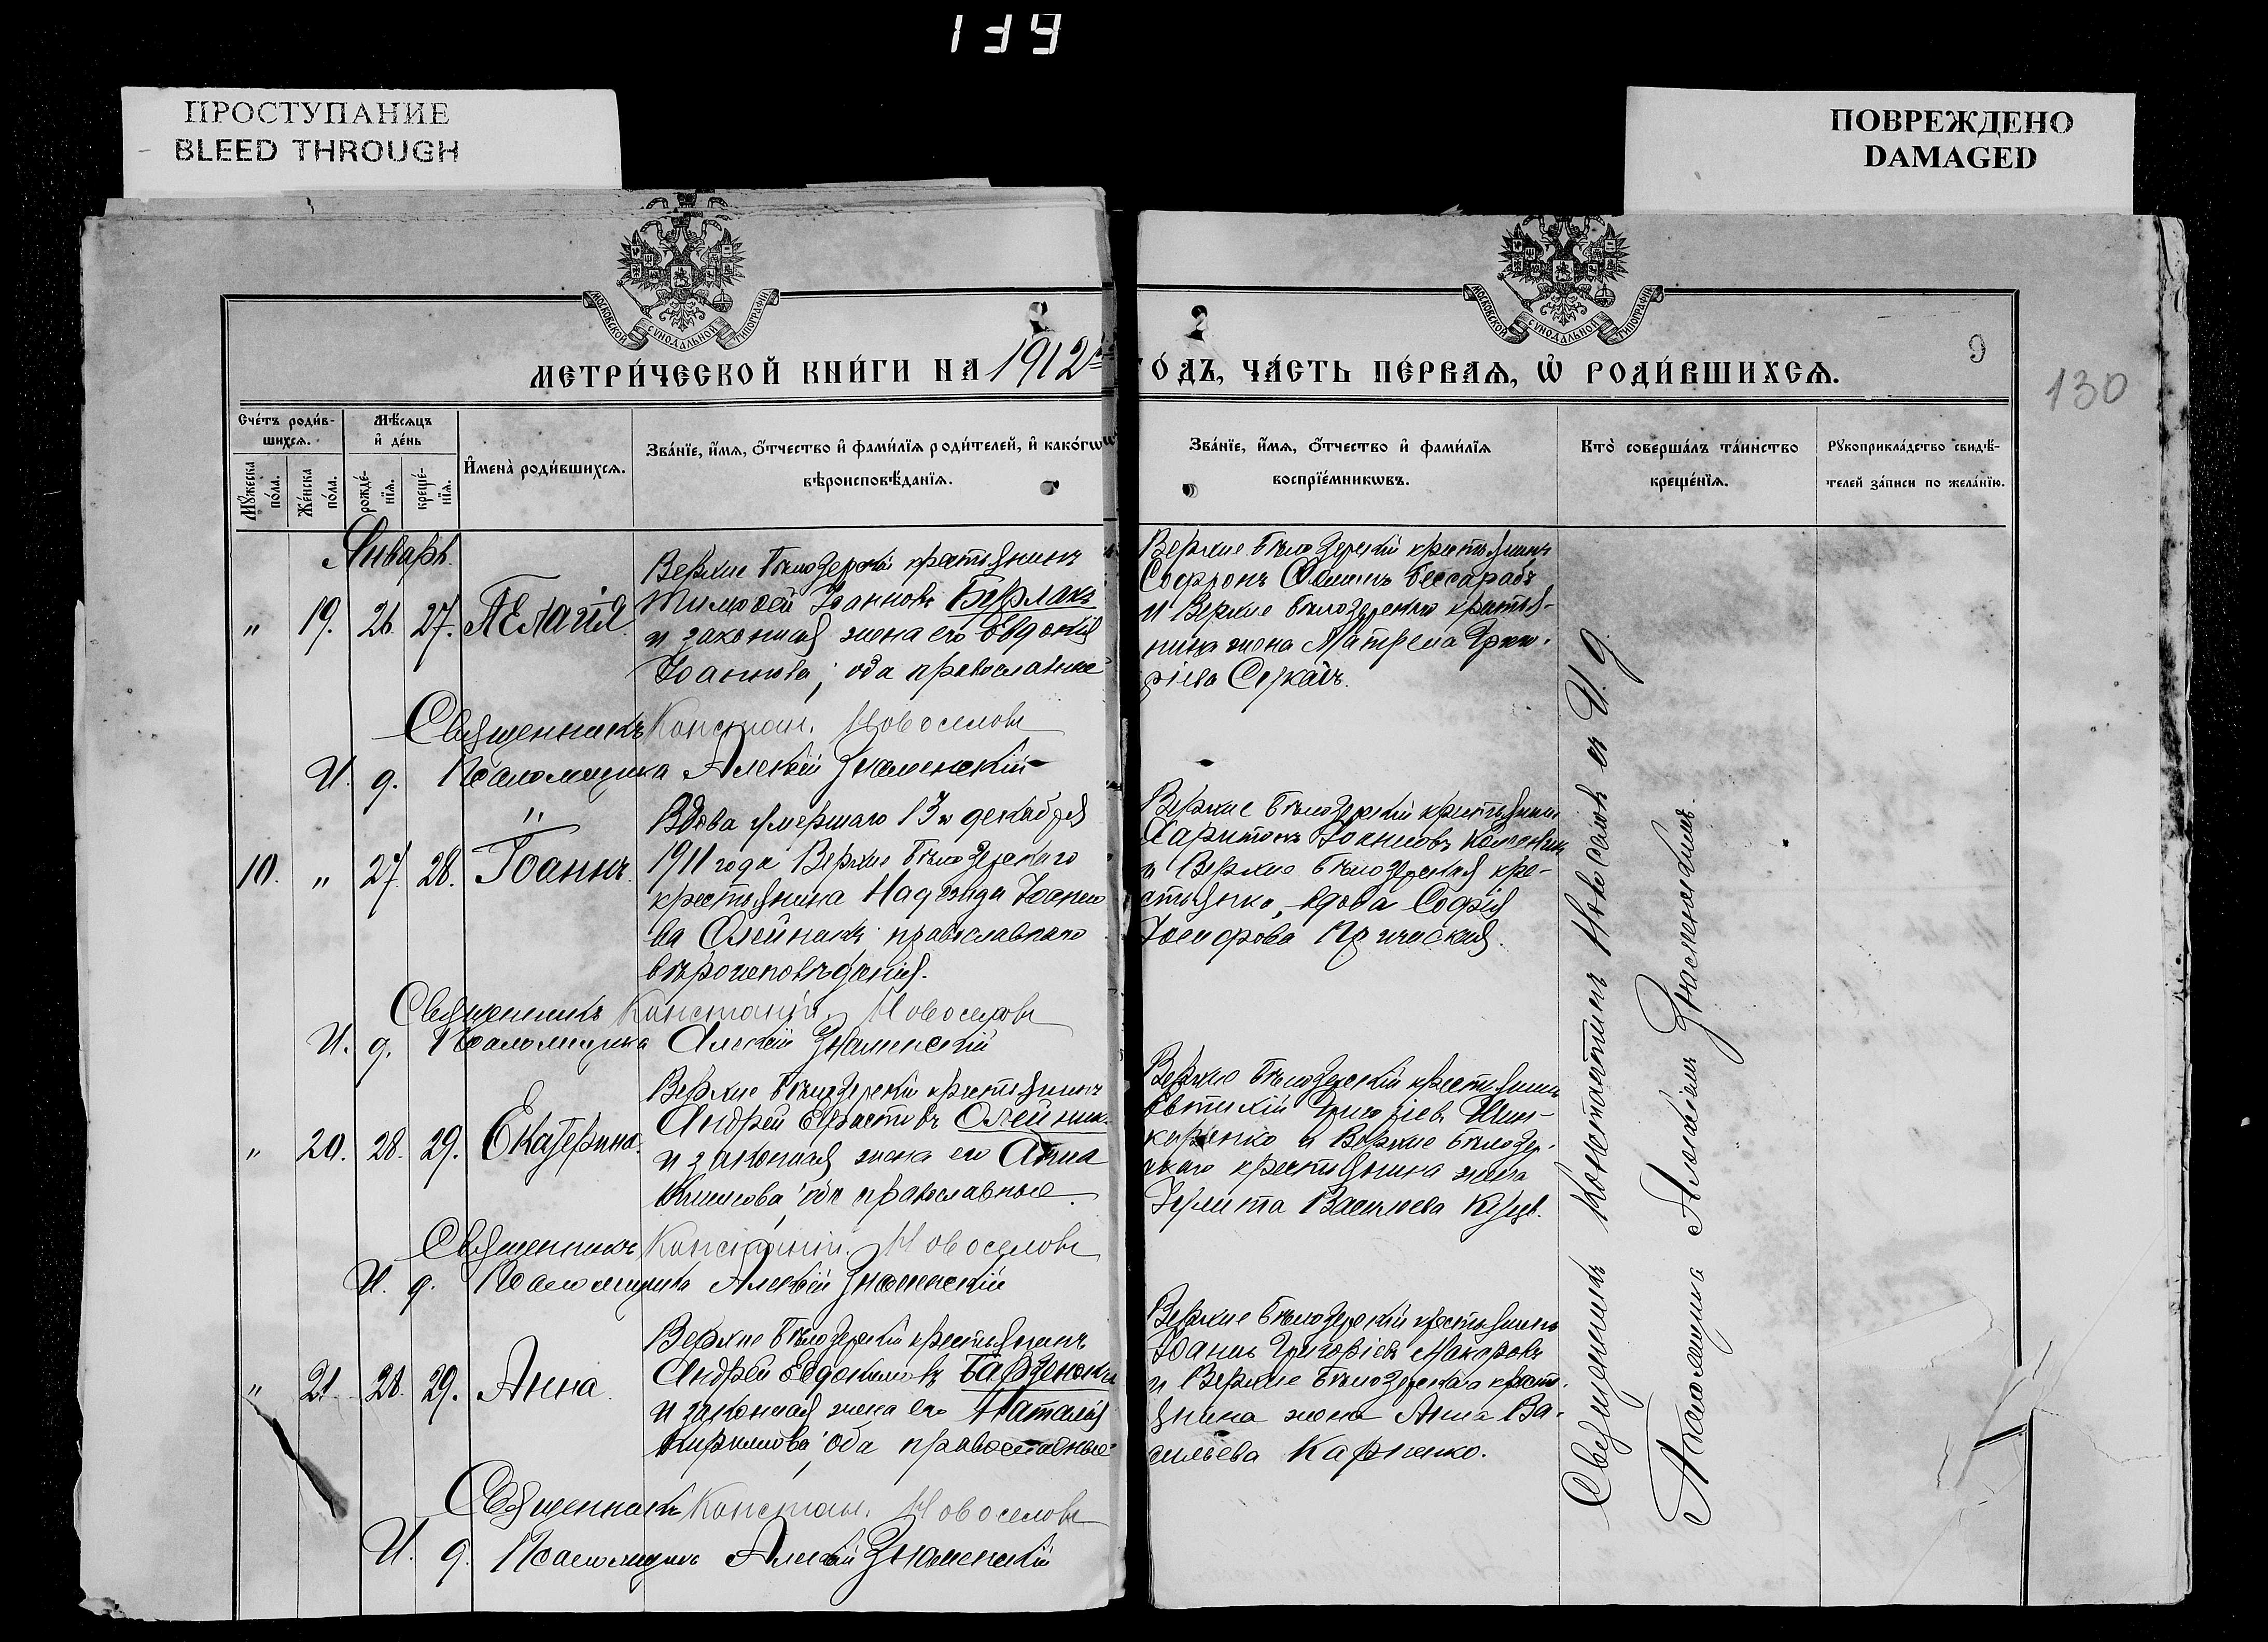 139
ПРОСТУПАНИЕ
BLEED THROUGH
ПОВРЕЖДЕНО
DAMAGED
МОСКОВСКОЙ СѴНОДАЛЬНОЙ ТИПОГРАФІИ
МОСКОВСКОЙ СѴНОДАЛЬНОЙ ТИПОГРАФІИ
2
2
9
МЕТРИ́ЧЕСКОЙ КНИ́ГИ НА 1912
ГО́ДЪ, ЧА́СТЬ ПЕ́РВАѦ, Ѽ РОДИ́ВШИХСѦ.
130
Сче́тъ роди́в-
шихсѧ.
Мѣ́сѧцъ
и҆ де́нь
Мꙋ́жеска по́ла.
Же́нска по́ла.
рожде́-
нїѧ.
креще́-
нїѧ.
И҆мена̀ роди́вшихсѧ.
Зва́нїе, и҆́мѧ, ѻ҆́тчество и҆ фами́лїѧ роди́телей, и҆ како́гѡ
вѣроисповѣ́данїѧ.
Зва́нїе, и҆́мѧ, ѻ҆́тчество и҆ фами́лїѧ
воспрїе́мникѡвъ.
Кто̀ соверша́лъ та́инство
креще́нїѧ.
Рꙋкоприкла́дство свидѣ́-
телей за́писи по жела́нїю.
Январь.
" 19. 26. 27. Пелагія.
Верхне Бѣлозерскій крестьянинъ
Тимофей Іоанновъ Бурлакъ
и законная жена его Евдокія
Іоаннова, оба православные
Верхне Бѣлозерскій крестьянинъ
Софронъ Бессарабъ
и Верхне Бѣлозерскаго крестья-
нина жена Матрена Григо-
ріева
Священникъ Констан. Новоселовъ
И. д. Псаломщика Алексѣй Знаменскій
10. " 27. 28. Іоаннъ.
Вдова умершаго 13го декабря
1911 года Верхне Бѣлозерскаго
крестьянина Надежда Іоанно
ва Олейникъ православнаго
вѣроисповѣданія.
Верхне Бѣлозерскій крестьянинъ
Харитонъ Іоанновъ
и Верхне Бѣлозерская кре-
стьянка, вдова Софія
Іосифова
Священникъ Констант. Новоселовъ
И. д. Псаломщика Алексѣй Знаменскій
" 20. 28. 29. Екатерина.
Верхне Бѣлозерскій крестьянинъ
Андрей Ерастовъ Олейник
и законная жена его Анна
оба православные.
Верхне Бѣлозерскій крестьянинъ
Евтихій Григоріевъ Шин-
каренко и Верхне Бѣлозер-
скаго крестьянина жена
Васильева
Священникъ Констант. Новоселовъ
И. д. Псаломщика Алексѣй Знаменскій
" 21. 28. 29. Анна.
Верхне Бѣлозерскій крестьянинъ
Андрей Евдокимовъ
и законная жена его Наталія
Кириллова, оба православные
Верхне Бѣлозерскій крестьянинъ
Іоаннъ Григоріевъ Макаровъ
и Верхне Бѣлозерскаго крест-
янина жена Анна Ва-
сильева Карпенко.
Священникъ Констан. Новоселовъ
И. д. Псаломщика Алексѣй Знаменскій
Священникъ Константинъ Новоселовъ съ И. д.
Псаломщика Алексѣемъ Знаменскимъ.